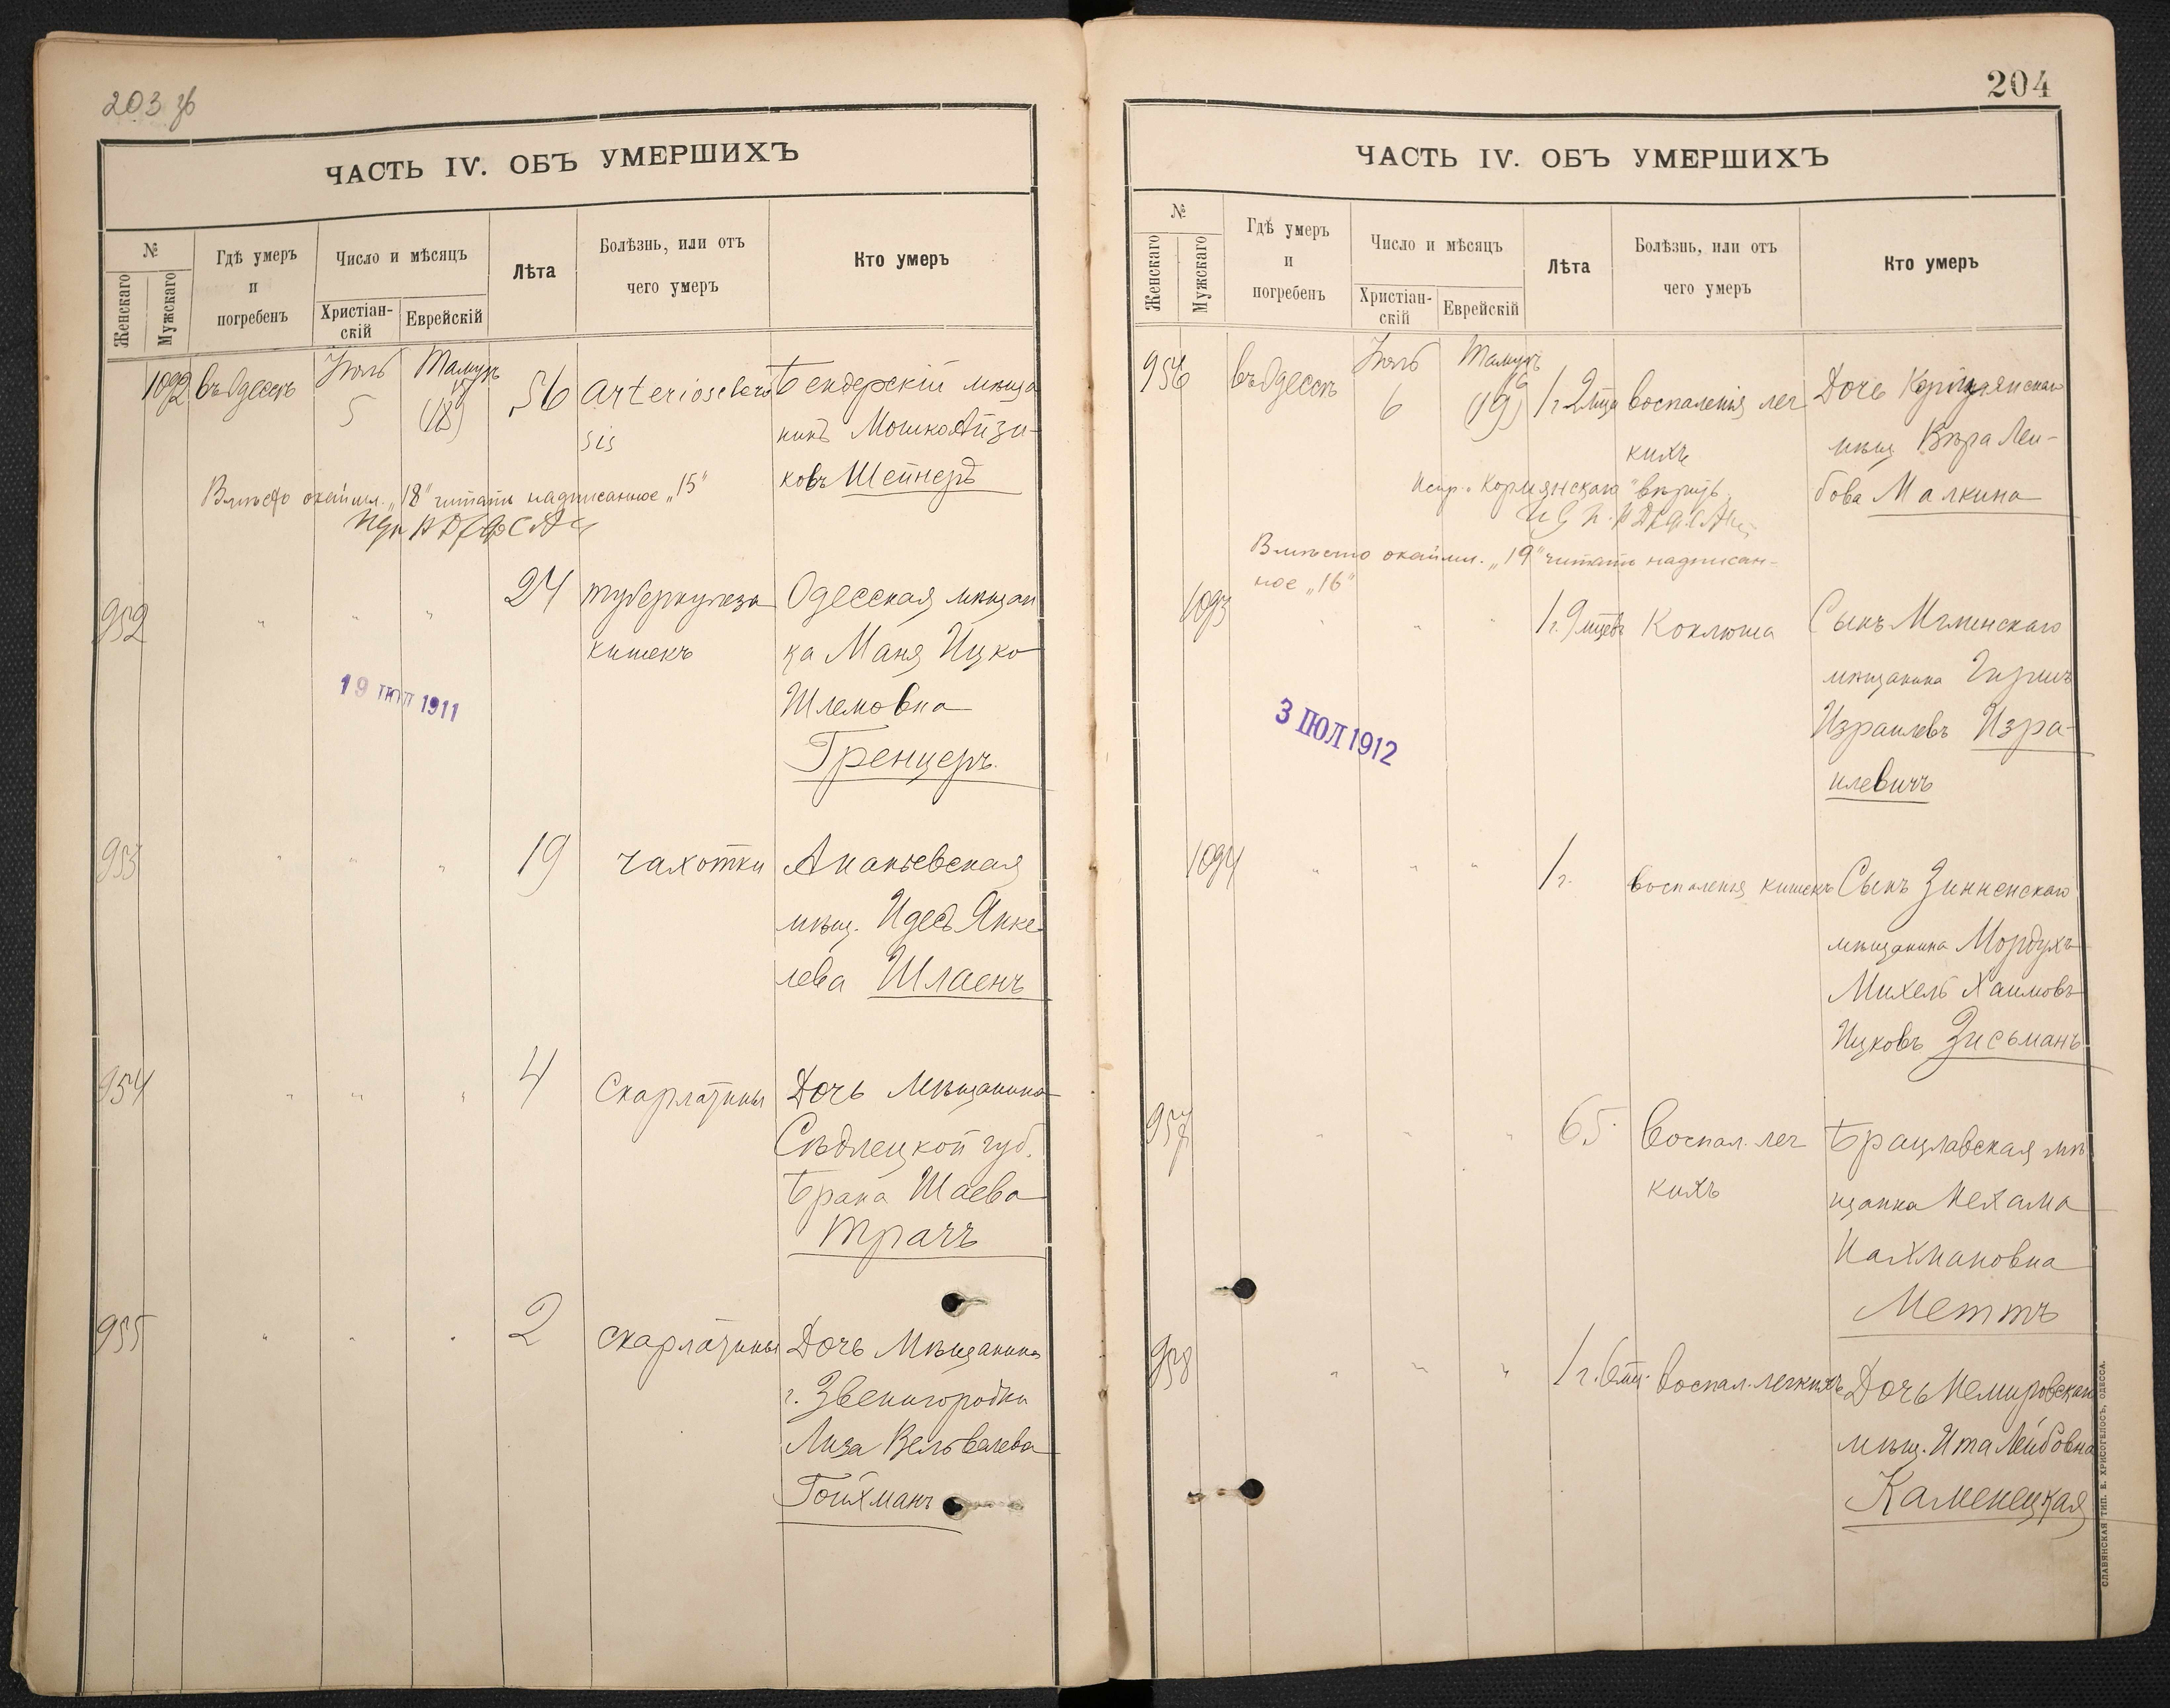 203
ЧАСТЬ IV. ОБЪ УМЕРШИХЪ
№
Женскаго
Мужскаго
Гдѣ умеръ
и
погребенъ
Число и мѣсяцъ
Христіан-
скій
Еврейскій
Лѣта
Болѣзнь, или отъ
чего умеръ
Кто умеръ
1092 въ Одессѣ Іюль 5 Тамуз 15 (18) 56 Arteriosclero
sis
Бендерскій мѣща
нинъ Мошко Айзи-
ковъ Шейнеръ
Вмѣсто окаймл. „18" читать надписанное „15"
952 " " " 24 туберкулеза
кишекъ
Одесская мѣщан
ка Маня Ицко
Шлемовна
Гренцеръ.
19 ІЮЛ 1911
953 " " " 19 чахотки Ананьевская
мѣщ. Идесъ Янке
лева Шлаенъ
954 " " " 4 Скарлатины Дочь Мѣщанина
Сѣдлецкой губ.
Брана Шаева
Трачъ
955 " " " 2 скарлатины Дочь Мѣщанина
г. Звенигородки
Лиза Вельвелева
Гойхманъ
204
ЧАСТЬ IV. ОБЪ УМЕРШИХЪ
№
Женскаго
Мужскаго
Гдѣ умеръ
и
погребенъ
Число и мѣсяцъ
Христіан-
скій
Еврейскій
Лѣта
Болѣзнь, или отъ
чего умеръ
Кто умеръ
956 въ Одессѣ Іюль 6 Тамузъ 16 (19) 1 г. 2 мца воспаленія лег
кихъ
Дочь
мѣщ Вѣра Леи-
бова Малкина
Испр. „Кормянскаго" вѣрить.
Вмѣсто окаймл. „19" читать надписан-
ное „16"
1093 " " " 1 г. 9 мцевъ Коклюша Сынъ Игуменскаго
мѣщанина Гиршъ
Израилевъ Изра-
илевичъ
3 ІЮЛ 1912
1094 " " " 1 г. воспаленія кишекъ Сынъ
мѣщанина Мордухъ
Михель Хаимовъ
Ицковъ Зисьманъ
957 " " " 65 воспал. лег
кихъ
Брацлавская мѣ
щанка Нехама
Нахмановна
Меттъ
958 " " " 1 г. 6 мц. воспал. легкихъ Дочь Немировскаго
мѣщ. Ита Лейбовна
Каменецкая
СЛАВЯНСКАЯ ТИП. Е. ХРИСОГЕЛОСЪ, ОДЕССА.